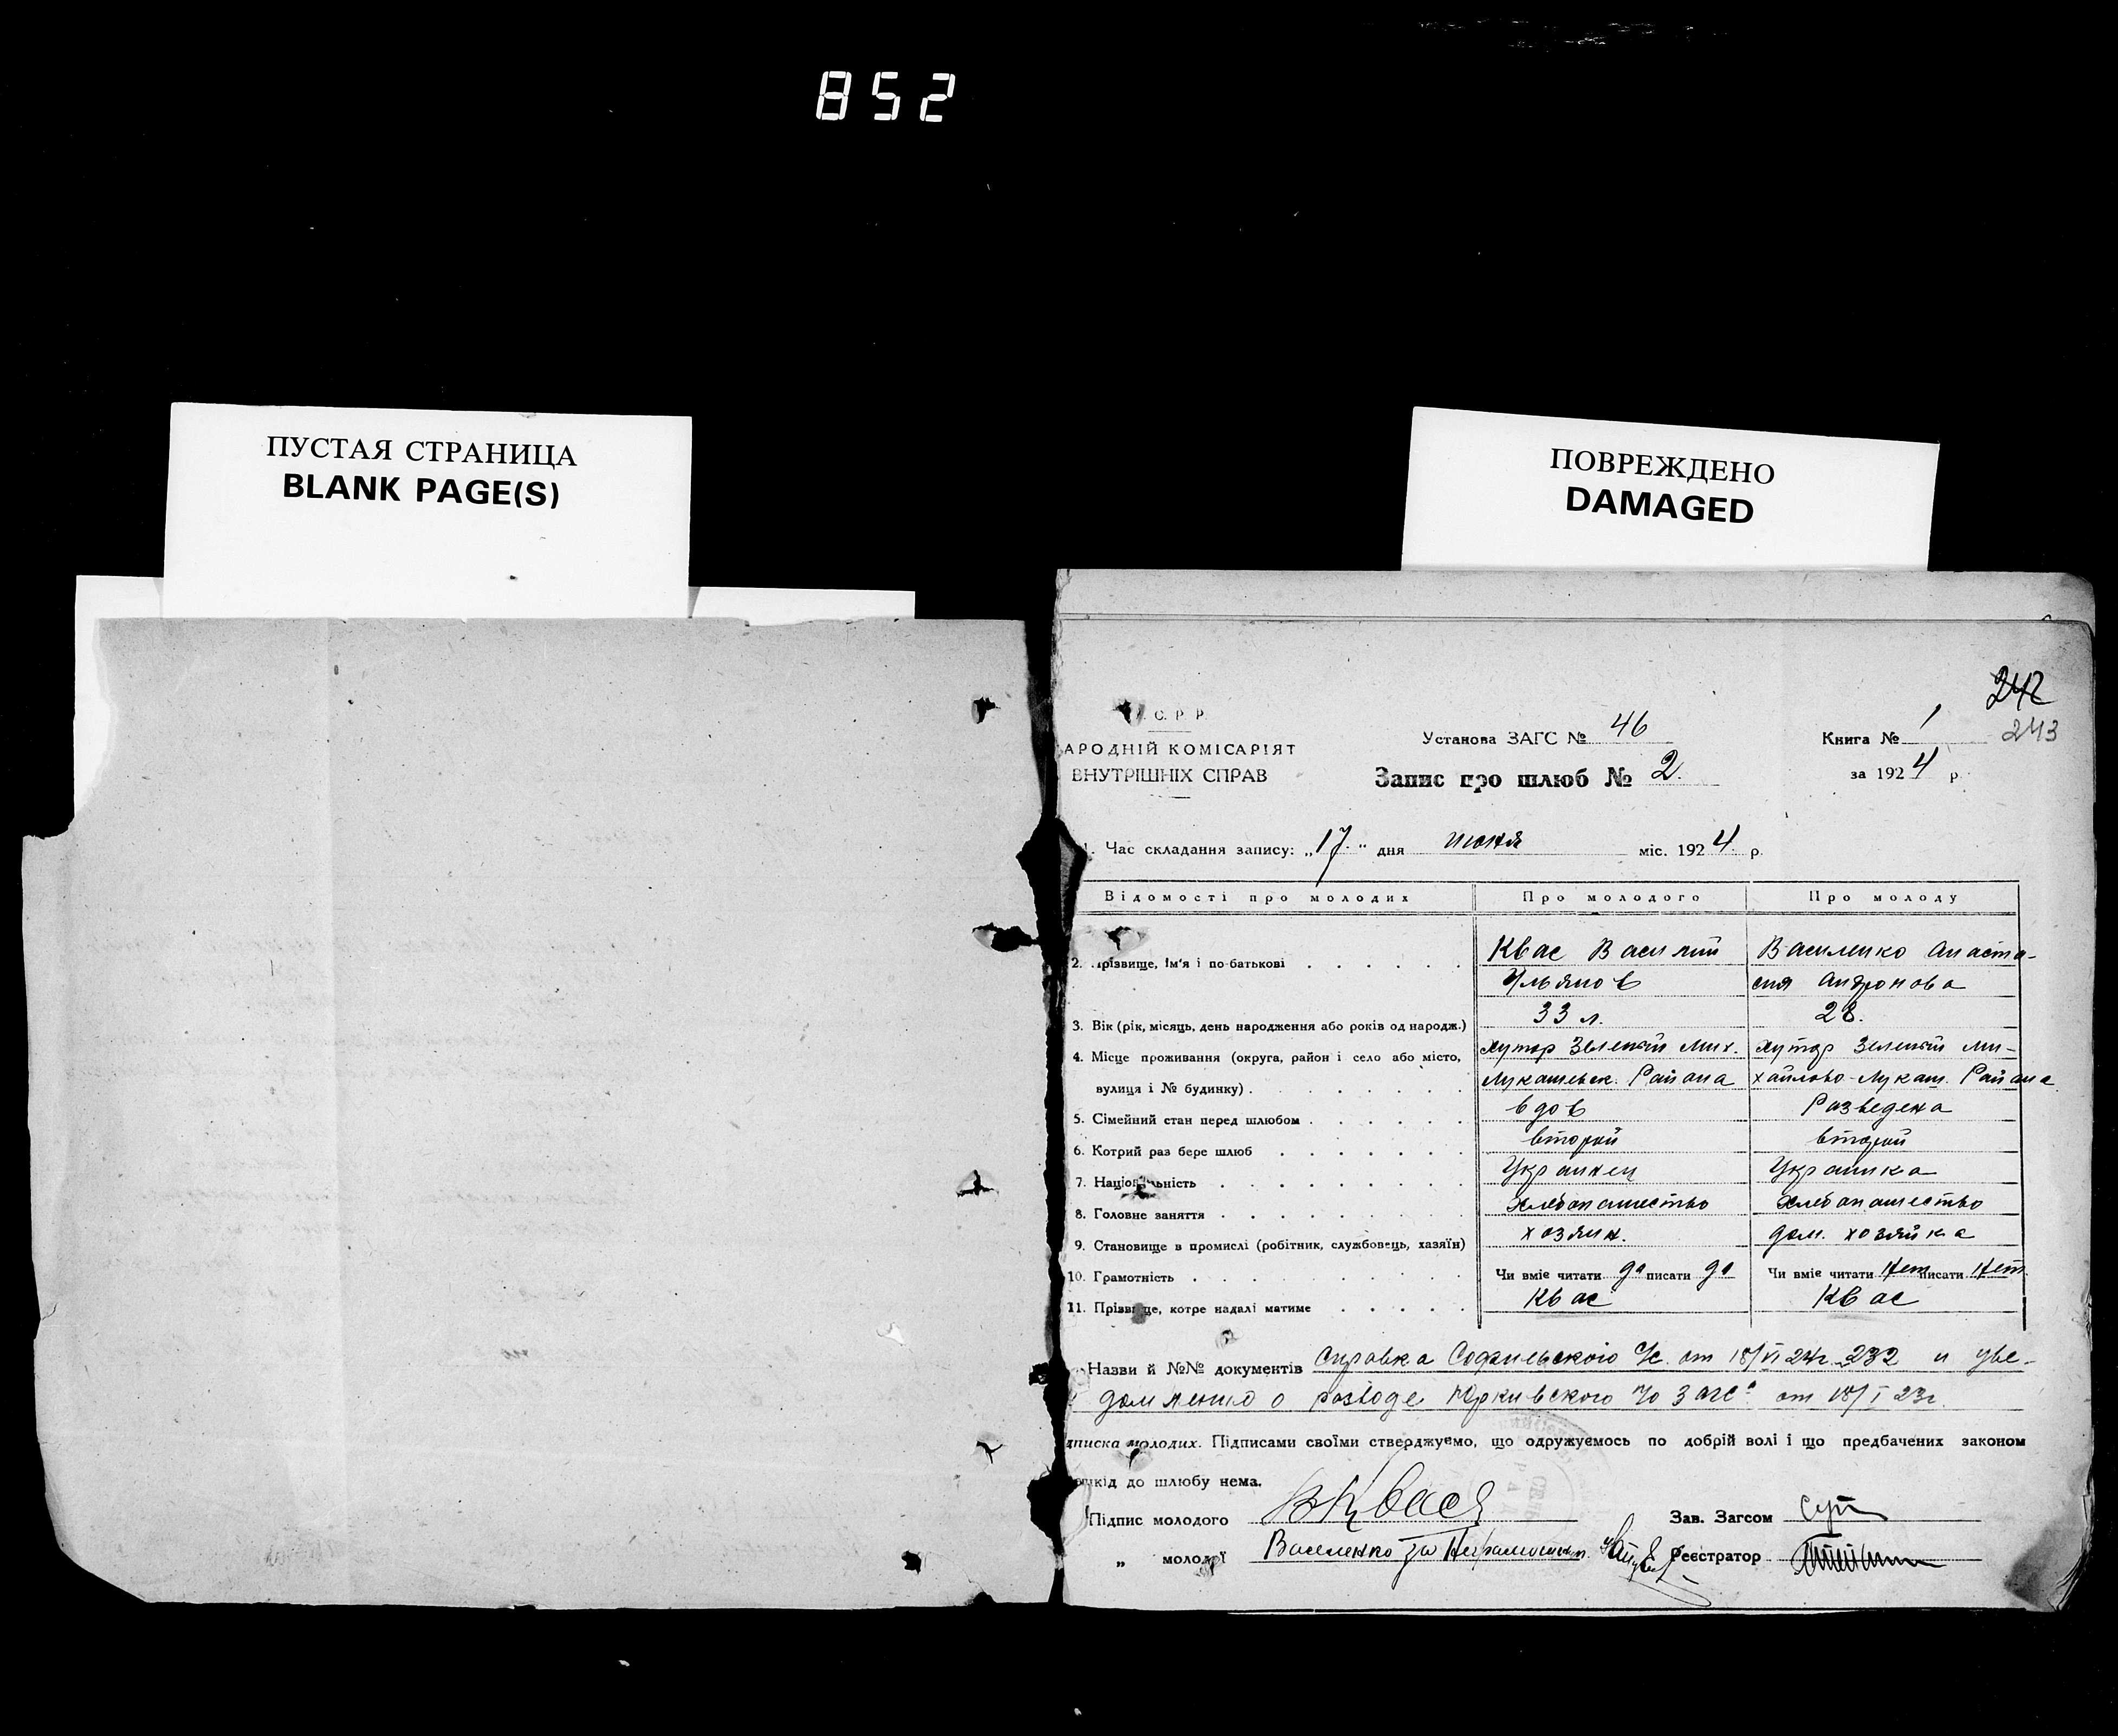 852
ПУСТАЯ СТРАНИЦА
BLANK PAGE(S)
ПОВРЕЖДЕНО
DAMAGED
242
243
С. Р. Р.
АРОДНІЙ КОМІСАРІЯТ
ВНУТРІШНІХ СПРАВ
Установа ЗАГС № 46
Книга № 1
Запис про шлюб № 2.
за 1924 р.
1. Час складання запису: „17“ дня июня міс. 1924 р.
Відомості про молодих Про молодого Про молоду
2. прізвище, ім'я і по-батькові Квас Василий Василенко Анаста-
Ульянов сия Андронова
3. Вік (рік, місяць, день народження або років од народж.) 33 л. 28.
4. Місце проживання (округа, район і село або місто, хутор Зеленый Мих. хутор Зеленый Ми-
вулиця і № будинку) Лукашевск. Района хайлово-Лукаш. Района
5. Сімейний стан перед шлюбом вдов Разведена
6. Котрий раз бере шлюб второй второй
7. Національність Украинец Украинка
8. Головне заняття хлебопашество хлебопашество
9. Становище в промислі (робітник, службовець, хазяїн) хозяин. дом. хозяйка
10. Грамотність Чи вміє читати да писати да Чи вміє читати Нет писати Нет
11. Прізвище, котре надалі матиме Квас Квас
Назви й №№ документів Справка Софиевского с/с. от 18/VI 24г. 232 и уве-
домление о разводе Юркивского загса от 18/I 23г.
дписка молодих. Підписами своїми стверджуємо, що одружуємось по добрій волі і що предбачених законом
шкід до шлюбу нема.
Підпис молодого ВКвас Зав. Загсом
„ молодої Василенко за Неграмотн. Реєстратор